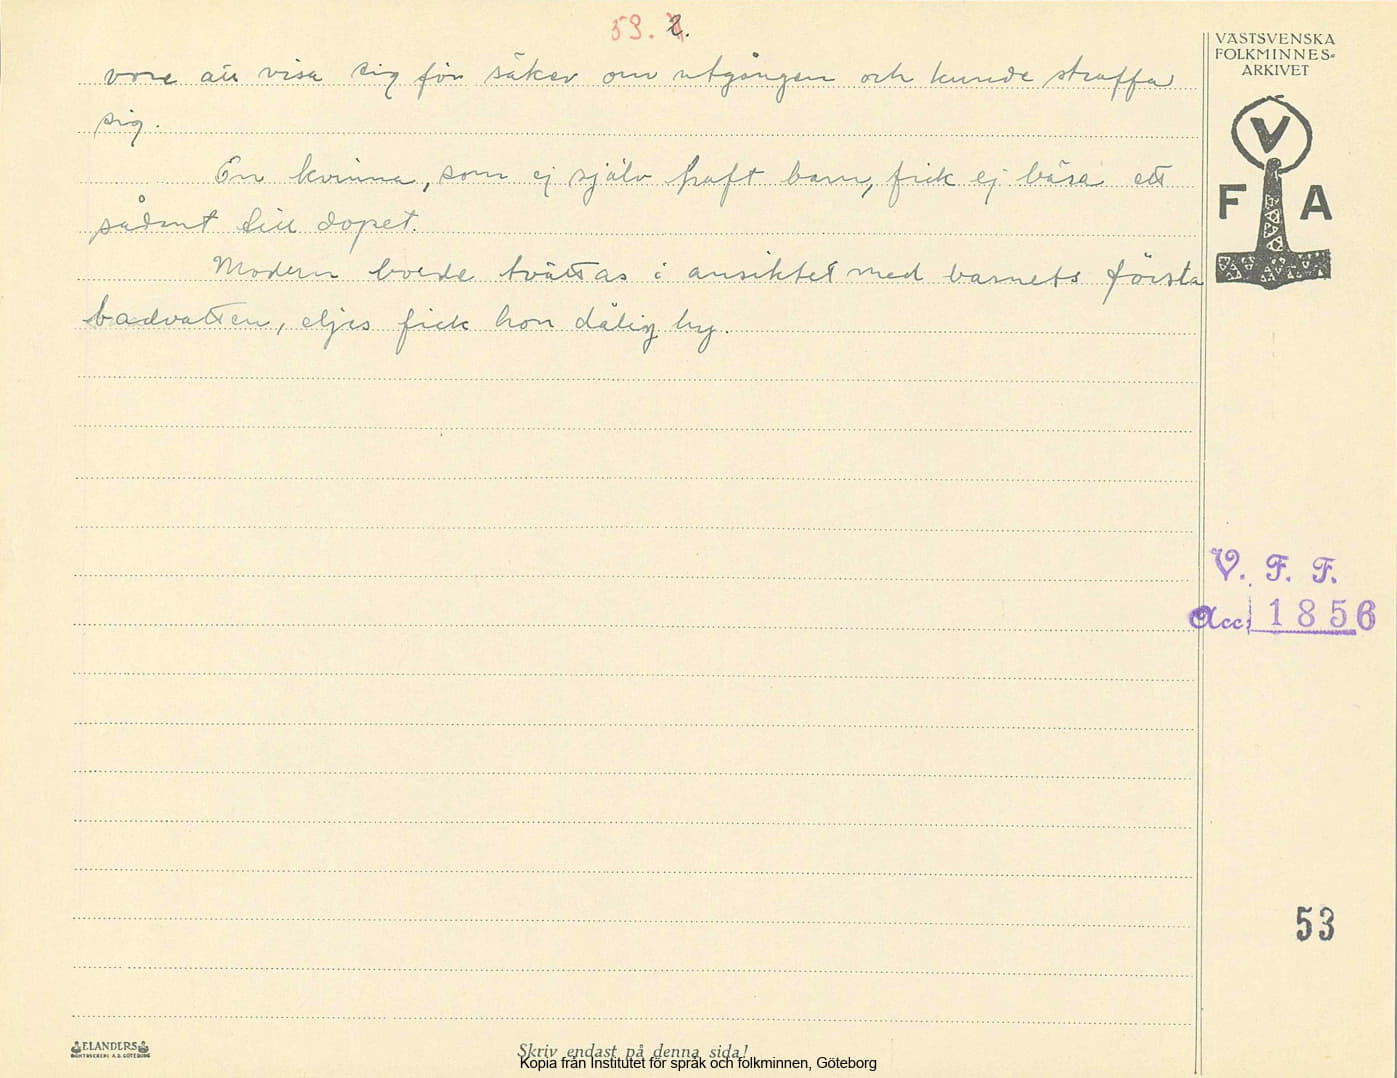 53. 2.
VÄSTSVENSKA
FOLKMINNES-
ARKIVET
V
F A
vore att visa sig för säker om utgången och kunde straffa
sig.
En kvinna, som ej själv haft barn, fick ej bära ett
sådant till dopet.
Modern borde tvättas i ansiktet med barnets första
badvatten, eljes fick hon dålig hy.
V. F. F.
Acc. 1856
53
ELANDERS
BOKTRYCKERI A.B. GÖTEBORG
Skriv endast på denna sida!
Kopia från Institutet för språk och folkminnen, Göteborg